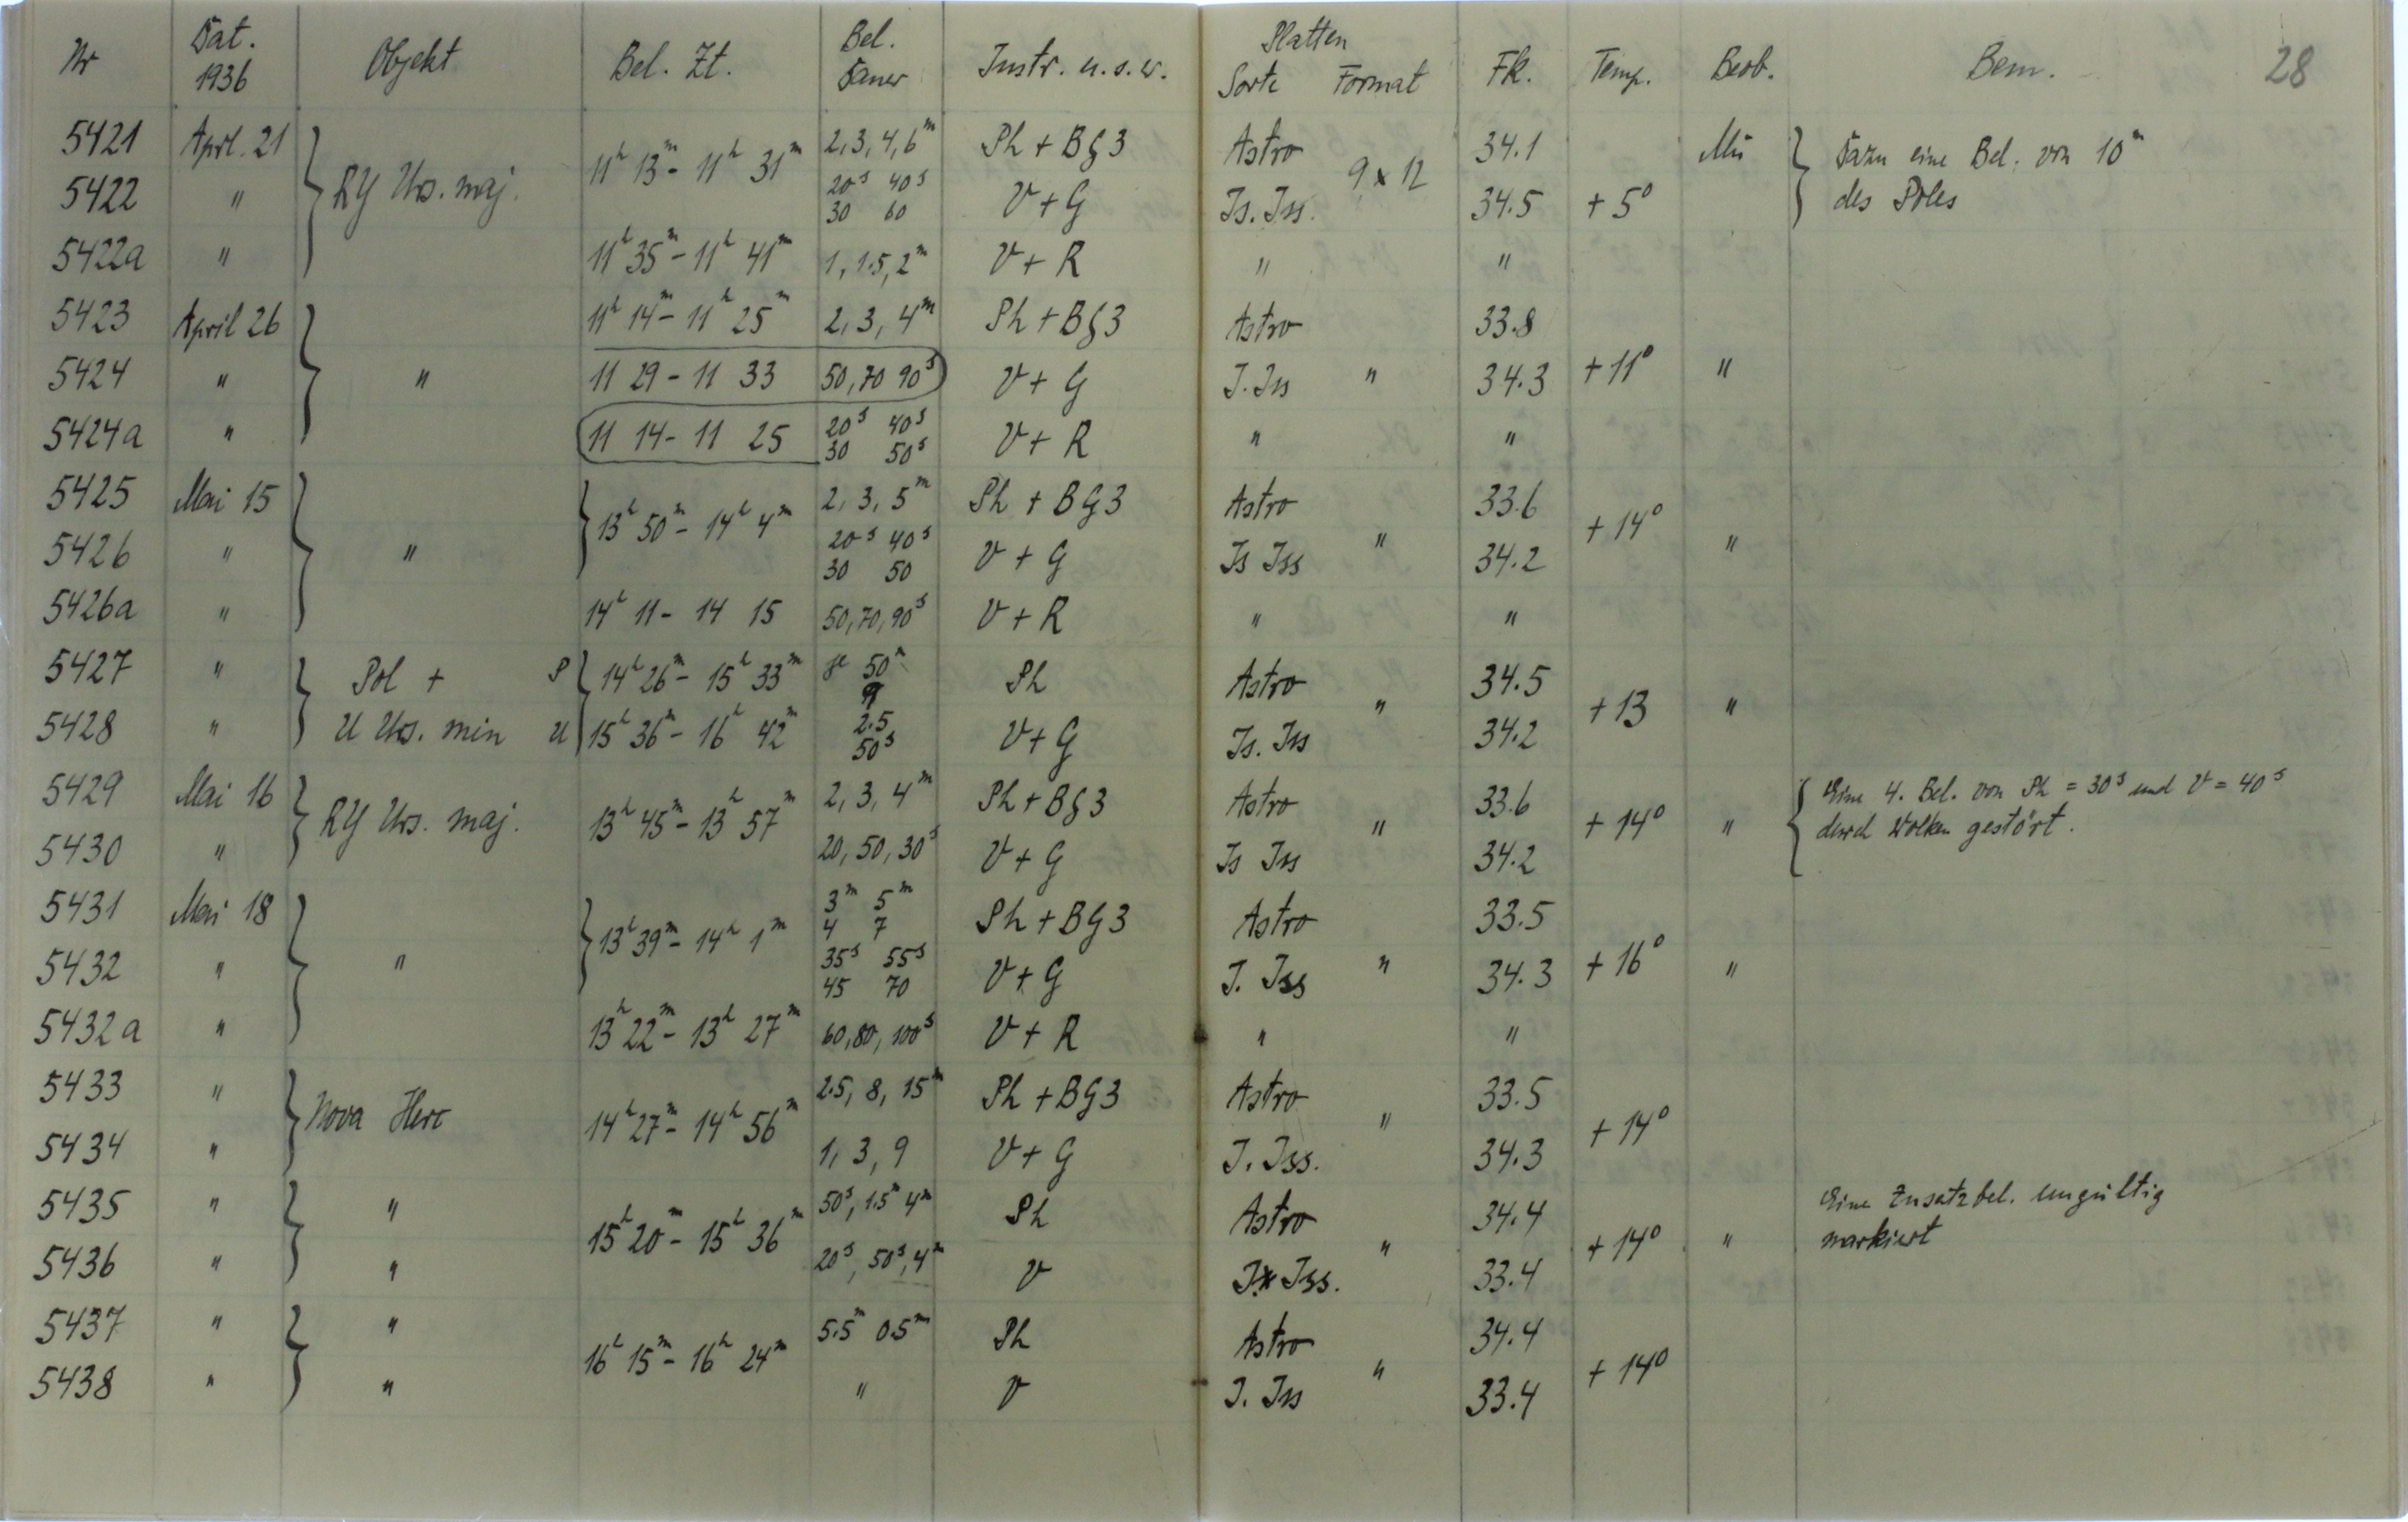 Nr Dat. 1936 Objekt Bel. Zt. Bel. Dauer Instr. u.s.w. Platten Sorte Format Fk. Temp. Beob. Bem. 28
5421 April. 21 RY Urs. maj. 11h 13m - 11h 31m 2, 3, 4, 6m Ph + BG3 Astro 9 x 12 34.1 +5° Mü Dazu eine Bel. von 10m
5422 " 20s 40s 30 60 V + G Is. Iss. 34.5 des Poles
5422a " 11h 35m - 11h 41m 1, 1.5, 2m V + R " "
5423 April 26 11h 14m - 11h 25m 2, 3, 4m Ph + BG3 Astro 33.8
5424 " " 11 29 - 11 33 50, 70 90s V + G I. Iss " 34.3 +11° "
5424a " 11 14 - 11 25 20s 40s 30 50s V + R " "
5425 Mai 15 13h 50m - 14h 4m 2, 3, 5m Ph + BG3 Astro 33.6 +14°
5426 " " 20s 40s 30 50 V + G Is Iss " 34.2 "
5426a " 14h 11 - 14 15 50, 70, 90s V + R " "
5427 " Pol + P 14h 26m - 15h 33m je 50m 9 Ph Astro " 34.5 +13 "
5428 " U Urs. min U 15h 36m - 16h 42m 2.5 50s V + G Is. Iss 34.2
5429 Mai 16 RY Urs. maj. 13h 45m - 13h 57m 2, 3, 4m Ph + BG3 Astro " 33.6 +14° " Eine 4. Bel. von Ph = 30s und V = 40s
5430 " 20, 50, 30s V + G Is Iss 34.2 durch Wolken gestört.
5431 Mai 18 13h 39m - 14h 1m 3m 5m 4 7 Ph + BG3 Astro 33.5
5432 " " 35s 55s 45 70 V + G I. Iss " 34.3 +16° "
5432a " 13h 22m - 13h 27m 60, 80, 100s V + R " "
5433 " Nova Herc 14h 27m - 14h 56m 2.5, 8, 15m Ph + BG3 Astro " 33.5 +14°
5434 " 1, 3, 9 V + G I. Iss. 34.3
5435 " " 15h 20m - 15h 36m 50s, 1.5m 4m Ph Astro " 34.4 +14° " Eine Zusatzbel. ungültig
5436 " " 20s, 50s, 4m V I. Iss. 33.4 markiert
5437 " " 16h 15m - 16h 24m 5.5m 0.5m Ph Astro " 34.4 +14°
5438 " " " V I. Iss 33.4